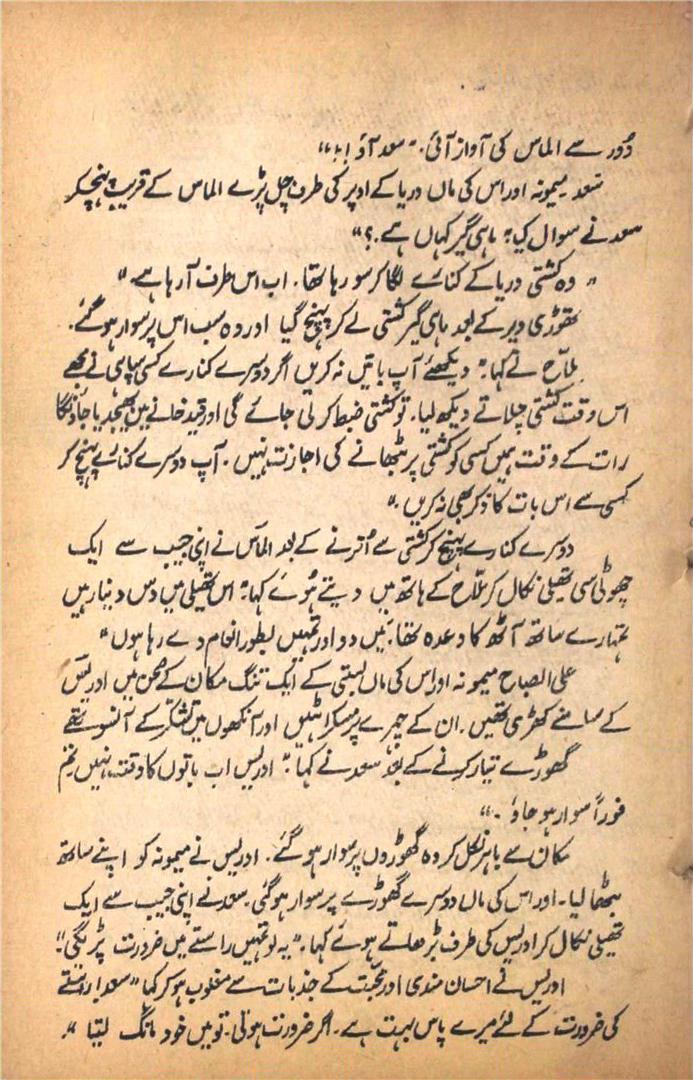 دُور سے الماس کی آواز آئی۔ "سعد آؤ!!"
سعد میمونہ اور اس کی ماں دریا کے اوپر کی طرف چل پڑے الماس کے قریب پہنچکر
سعد نے سوال کیا "ماہی گیر کہاں ہے۔؟"
"وہ کشتی دریا کے کنارے لگا کر سو رہا تھا۔ اب اس طرف آ رہا ہے"
تھوڑی دیر کے بعد ماہی گیر کشتی لے کر پہنچ گیا اور وہ سب اس پر سوار ہو گئے۔
ملّاح نے کہا۔" دیکھئے آپ باتیں نہ کریں اگر دوسرے کنارے کسی سپاہی نے مجھے
اس وقت کشتی چلاتے دیکھ لیا۔ تو کشتی ضبط کر لی جائے گی اور قید خانے میں بھیجد یا جاؤنگا
رات کے وقت ہمیں کسی کو کشتی پر بٹھانے کی اجازت نہیں۔ آپ دوسرے کنارے پہنچ کر
کسی سے اس بات کا ذکر بھی نہ کریں۔"
دوسرے کنارے پہنچ کر کشتی سے اُترنے کے بعد الماس نے اپنی جیب سے ایک
چھوٹی سی تھیلی نکال کر ملّاح کے ہاتھ میں دیتے ہُوئے کہا" اس تھیلی میں دس دینار ہیں
تمہارے ساتھ آٹھ کا وعدہ تھا۔ میں دو اور تمہیں بطور انعام دے رہا ہوں"
علی الصباح میمونہ اور اس کی ماں بستی کے ایک تنگ مکان کے صحن میں ادریس
کے سامنے کھڑی تھیں۔ ان کے چہرے پر مسکراہٹیں اور آنکھوں میں تشکر کے آنسو تھے
گھوڑے تیار کرنے کے بعد سعد نے کہا۔" ادریس اب باتوں کا وقت نہیں تم
فوراً سوار ہو جاؤ۔"
مکان سے باہر نکل کر وہ گھوڑوں پر سوار ہو گئے۔ ادریس نے میمونہ کو اپنے ساتھ
بٹھا لیا۔ اور اس کی ماں دوسرے گھوڑے پر سوار ہو گئی۔ سعد نے اپنی جیب سے ایک
تھیلی نکال کر ادریس کی طرف بڑھاتے ہوئے کہا۔" یہ لو تمہیں راستے میں ضرورت پڑیگی!"
ادریس نے احسان مندی اور محبّت کے جذبات سے مغلوب ہو کر کہا "سعد! راستے
کی ضرورت کے لئے میرے پاس بہت ہے۔ اگر ضرورت ہوتی۔ تو میں خود مانگ لیتا۔"